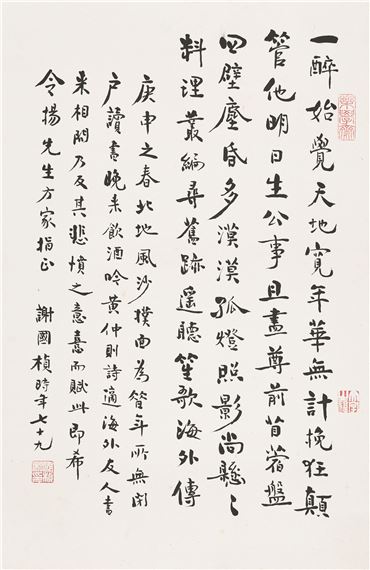 一醉始覺天地寬年華無計挽狂顛
管他明日生公事且盡尊前苜蓿盤
四壁塵昏多漠漠孤燈照影尚懸〻
料理叢編尋舊跡遥聽笙歌海外傳
庚申之春北地風沙撲面為昔年所無閉
户讀書晚来飲酒吟黄仲則詩適海外友人書
来相問乃反其悲憤之意憙而賦此即希
令揚先生方家指正 謝國楨時年七十九